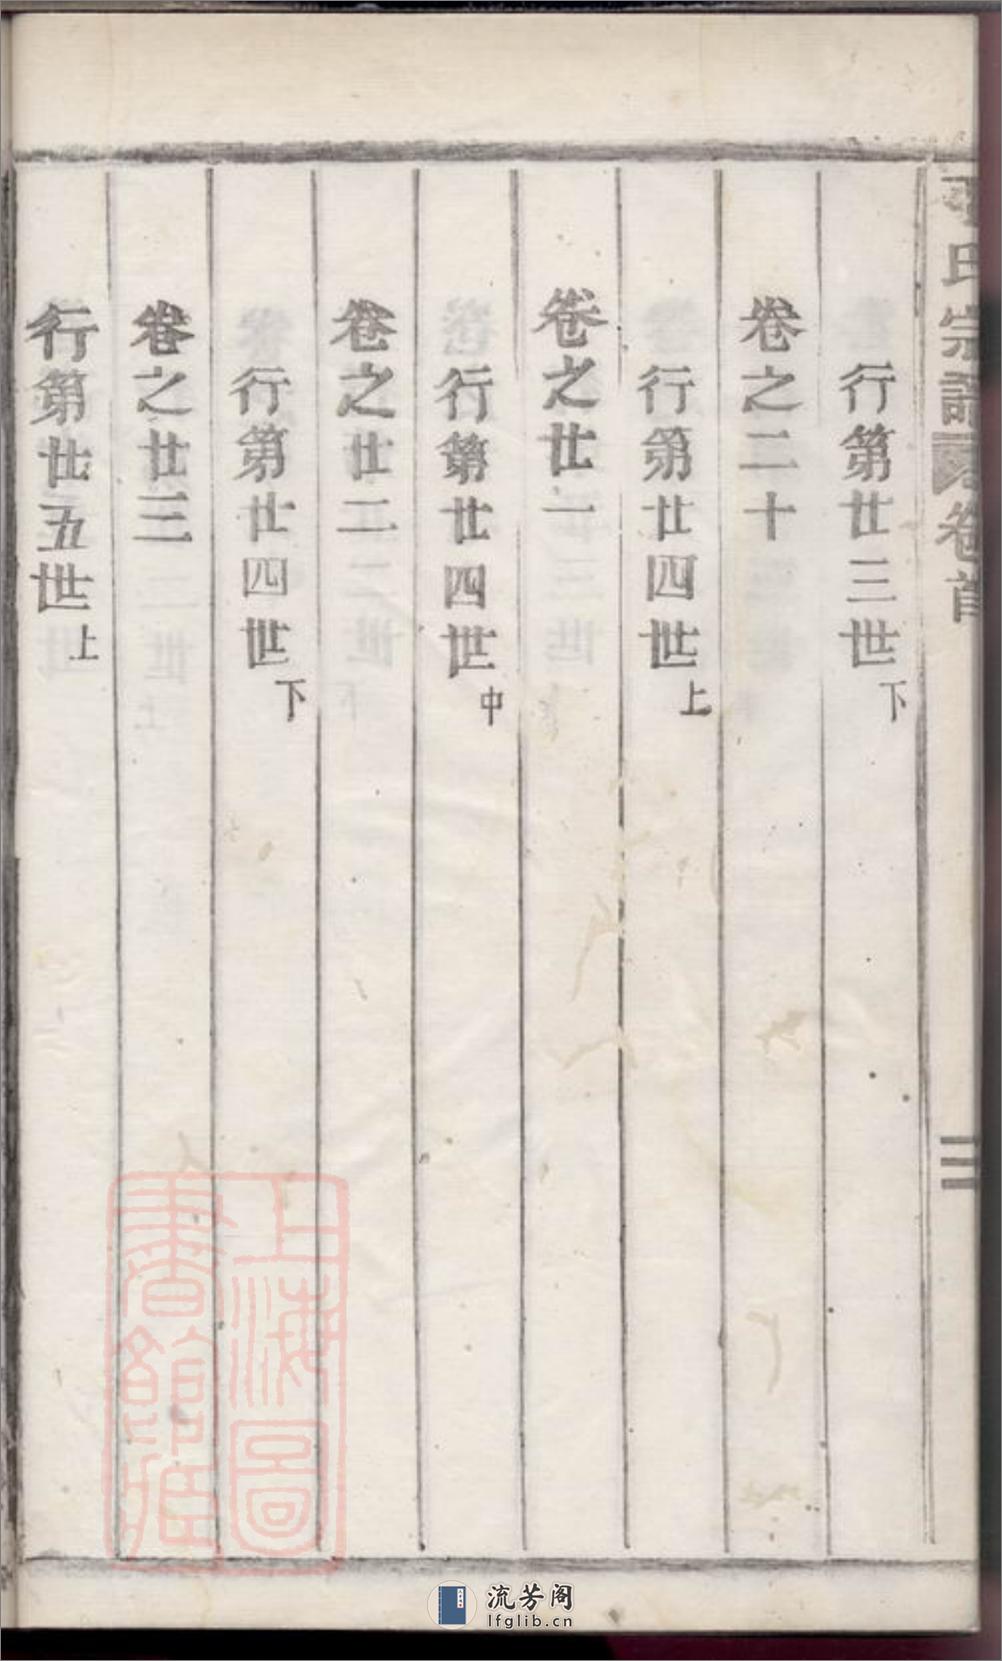 氏宗譜
卷首
三
行第廿三世下
卷之二十
行第廿四世上
卷之廿一
行第廿四世中
卷之廿二
行第廿四世下
卷之廿三
行第廿五世上
上海圖書館藏
流芳阁
lfglib.cn